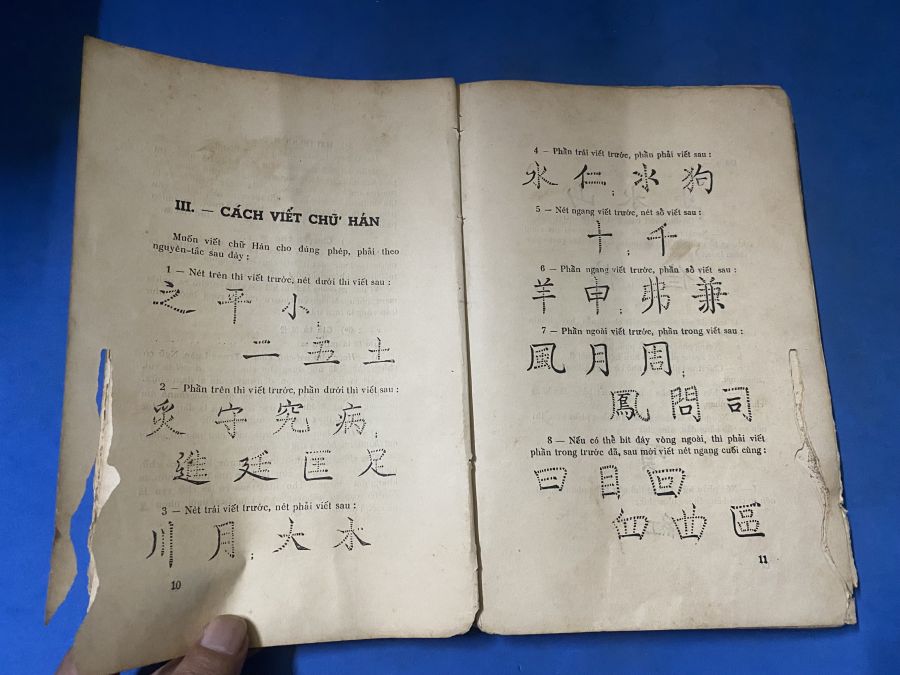 III. — CÁCH VIẾT CHỮ HÁN
Muốn viết chữ Hán cho đúng phép, phải theo
nguyên-tắc sau đây :
1 — Nét trên thì viết trước, nét dưới thì viết sau :
之 平 小 ;
二 五 土
2 — Phần trên thì viết trước, phần dưới thì viết sau :
災 守 究 病 ;
進 廷 匡 足
3 — Nét trái viết trước, nét phải viết sau :
川 月 ; 大 水
10
4 — Phần trái viết trước, phần phải viết sau :
永 仁 ; 氷 狗
5 — Nét ngang viết trước, nét sổ viết sau :
十 ; 千
6 — Phần ngang viết trước, phần sổ viết sau :
羊 申 弗 兼
7 — Phần ngoài viết trước, phần trong viết sau :
風 月 周 ;
鳳 問 司
8 — Nếu có thể bít đáy vòng ngoài, thì phải viết
phần trong trước đã, sau mới viết nét ngang cuối cùng :
曰 目 回
血 曲 區
11